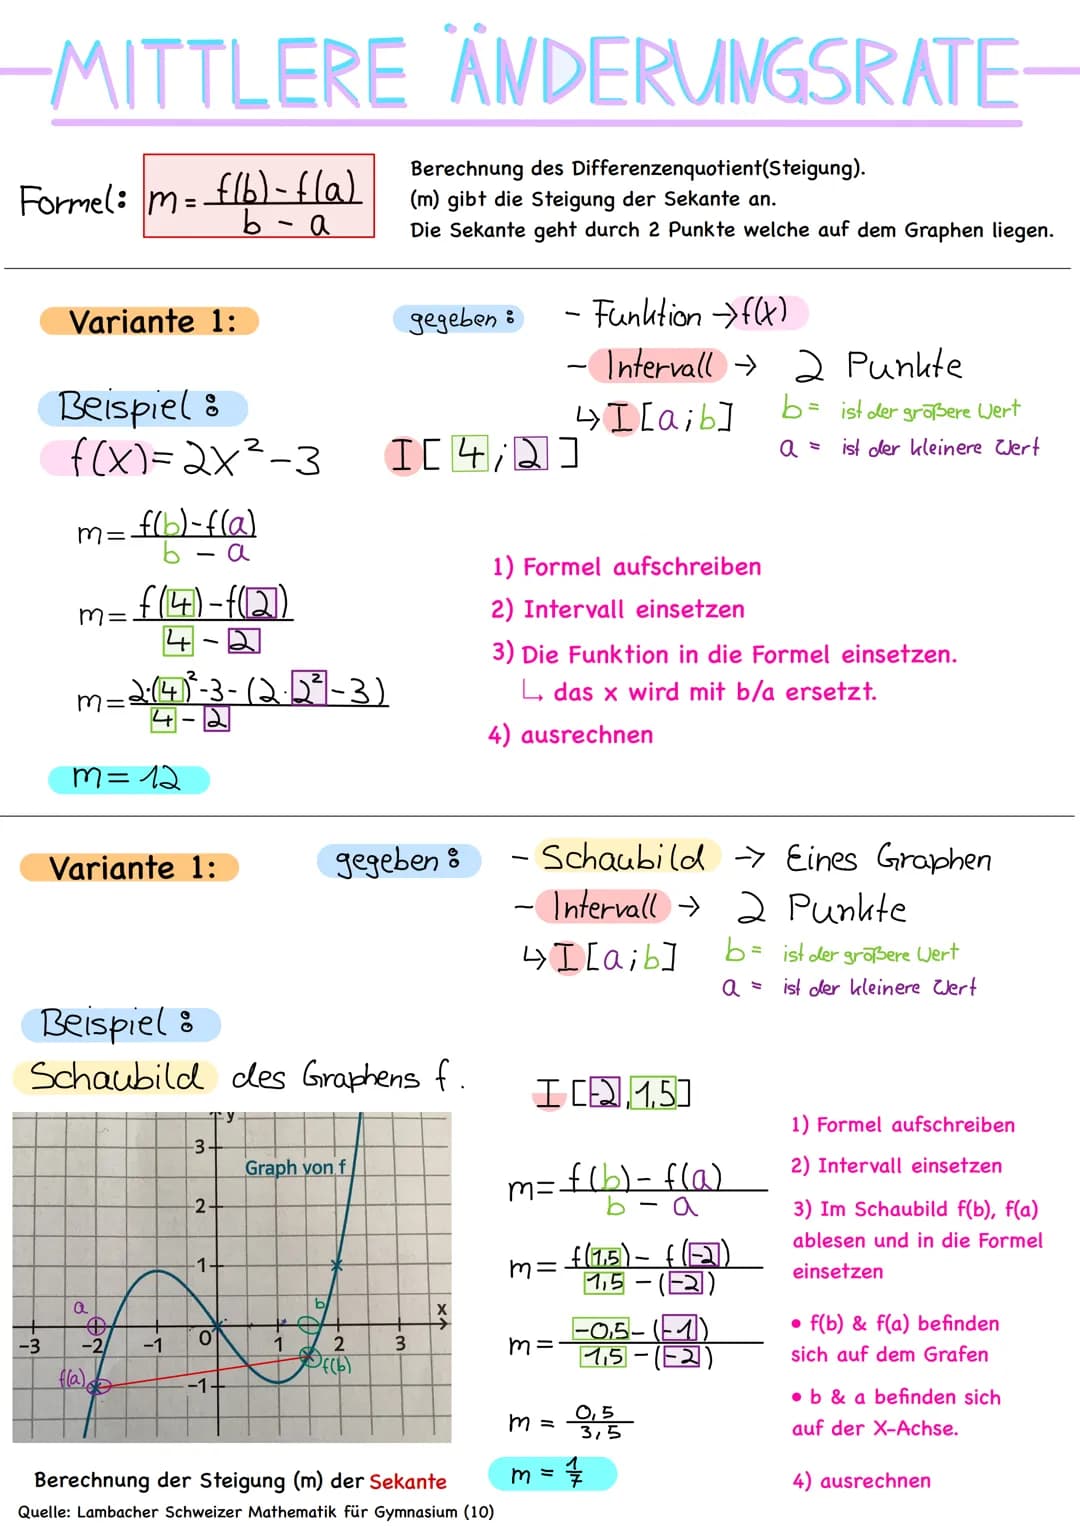 MITTLERE ÄNDERUNGSRATE
Formel: m = f(b) - f(a) / b - a
Berechnung des Differenzenquotient(Steigung).
(m) gibt die Steigung der Sekante an.
Die Sekante geht durch 2 Punkte welche auf dem Graphen liegen.
Variante 1:
gegeben:
- Funktion → f(x)
- Intervall → 2 Punkte
↳ I [a;b]
b = ist der größere Wert
a = ist der kleinere Wert
Beispiel:
f(x) = 2x² - 3
I [ 4 ; 2 ]
m = f(b) - f(a) / b - a
m = f(4) - f(2) / 4 - 2
m = 2·(4)² - 3 - (2·2² - 3) / 4 - 2
m = 12
1) Formel aufschreiben
2) Intervall einsetzen
3) Die Funktion in die Formel einsetzen.
↳ das x wird mit b/a ersetzt.
4) ausrechnen
Variante 1:
gegeben:
- Schaubild → Eines Graphen
- Intervall → 2 Punkte
↳ I [a;b]
b = ist der größere Wert
a = ist der kleinere Wert
Beispiel:
Schaubild des Graphens f.
y
3
2
1
-1
Graph von f
x
-3 -2 -1 0 1 2 3
a
b
f(a)
f(b)
Berechnung der Steigung (m) der Sekante
Quelle: Lambacher Schweizer Mathematik für Gymnasium (10)
I [-2, 1,5]
m = f(b) - f(a) / b - a
m = f(1,5) - f(-2) / 1,5 - (-2)
m = -0,5 - (-1) / 1,5 - (-2)
m = 0,5 / 3,5
m = 1/7
1) Formel aufschreiben
2) Intervall einsetzen
3) Im Schaubild f(b), f(a)
ablesen und in die Formel
einsetzen
• f(b) & f(a) befinden
sich auf dem Grafen
• b & a befinden sich
auf der X-Achse.
4) ausrechnen